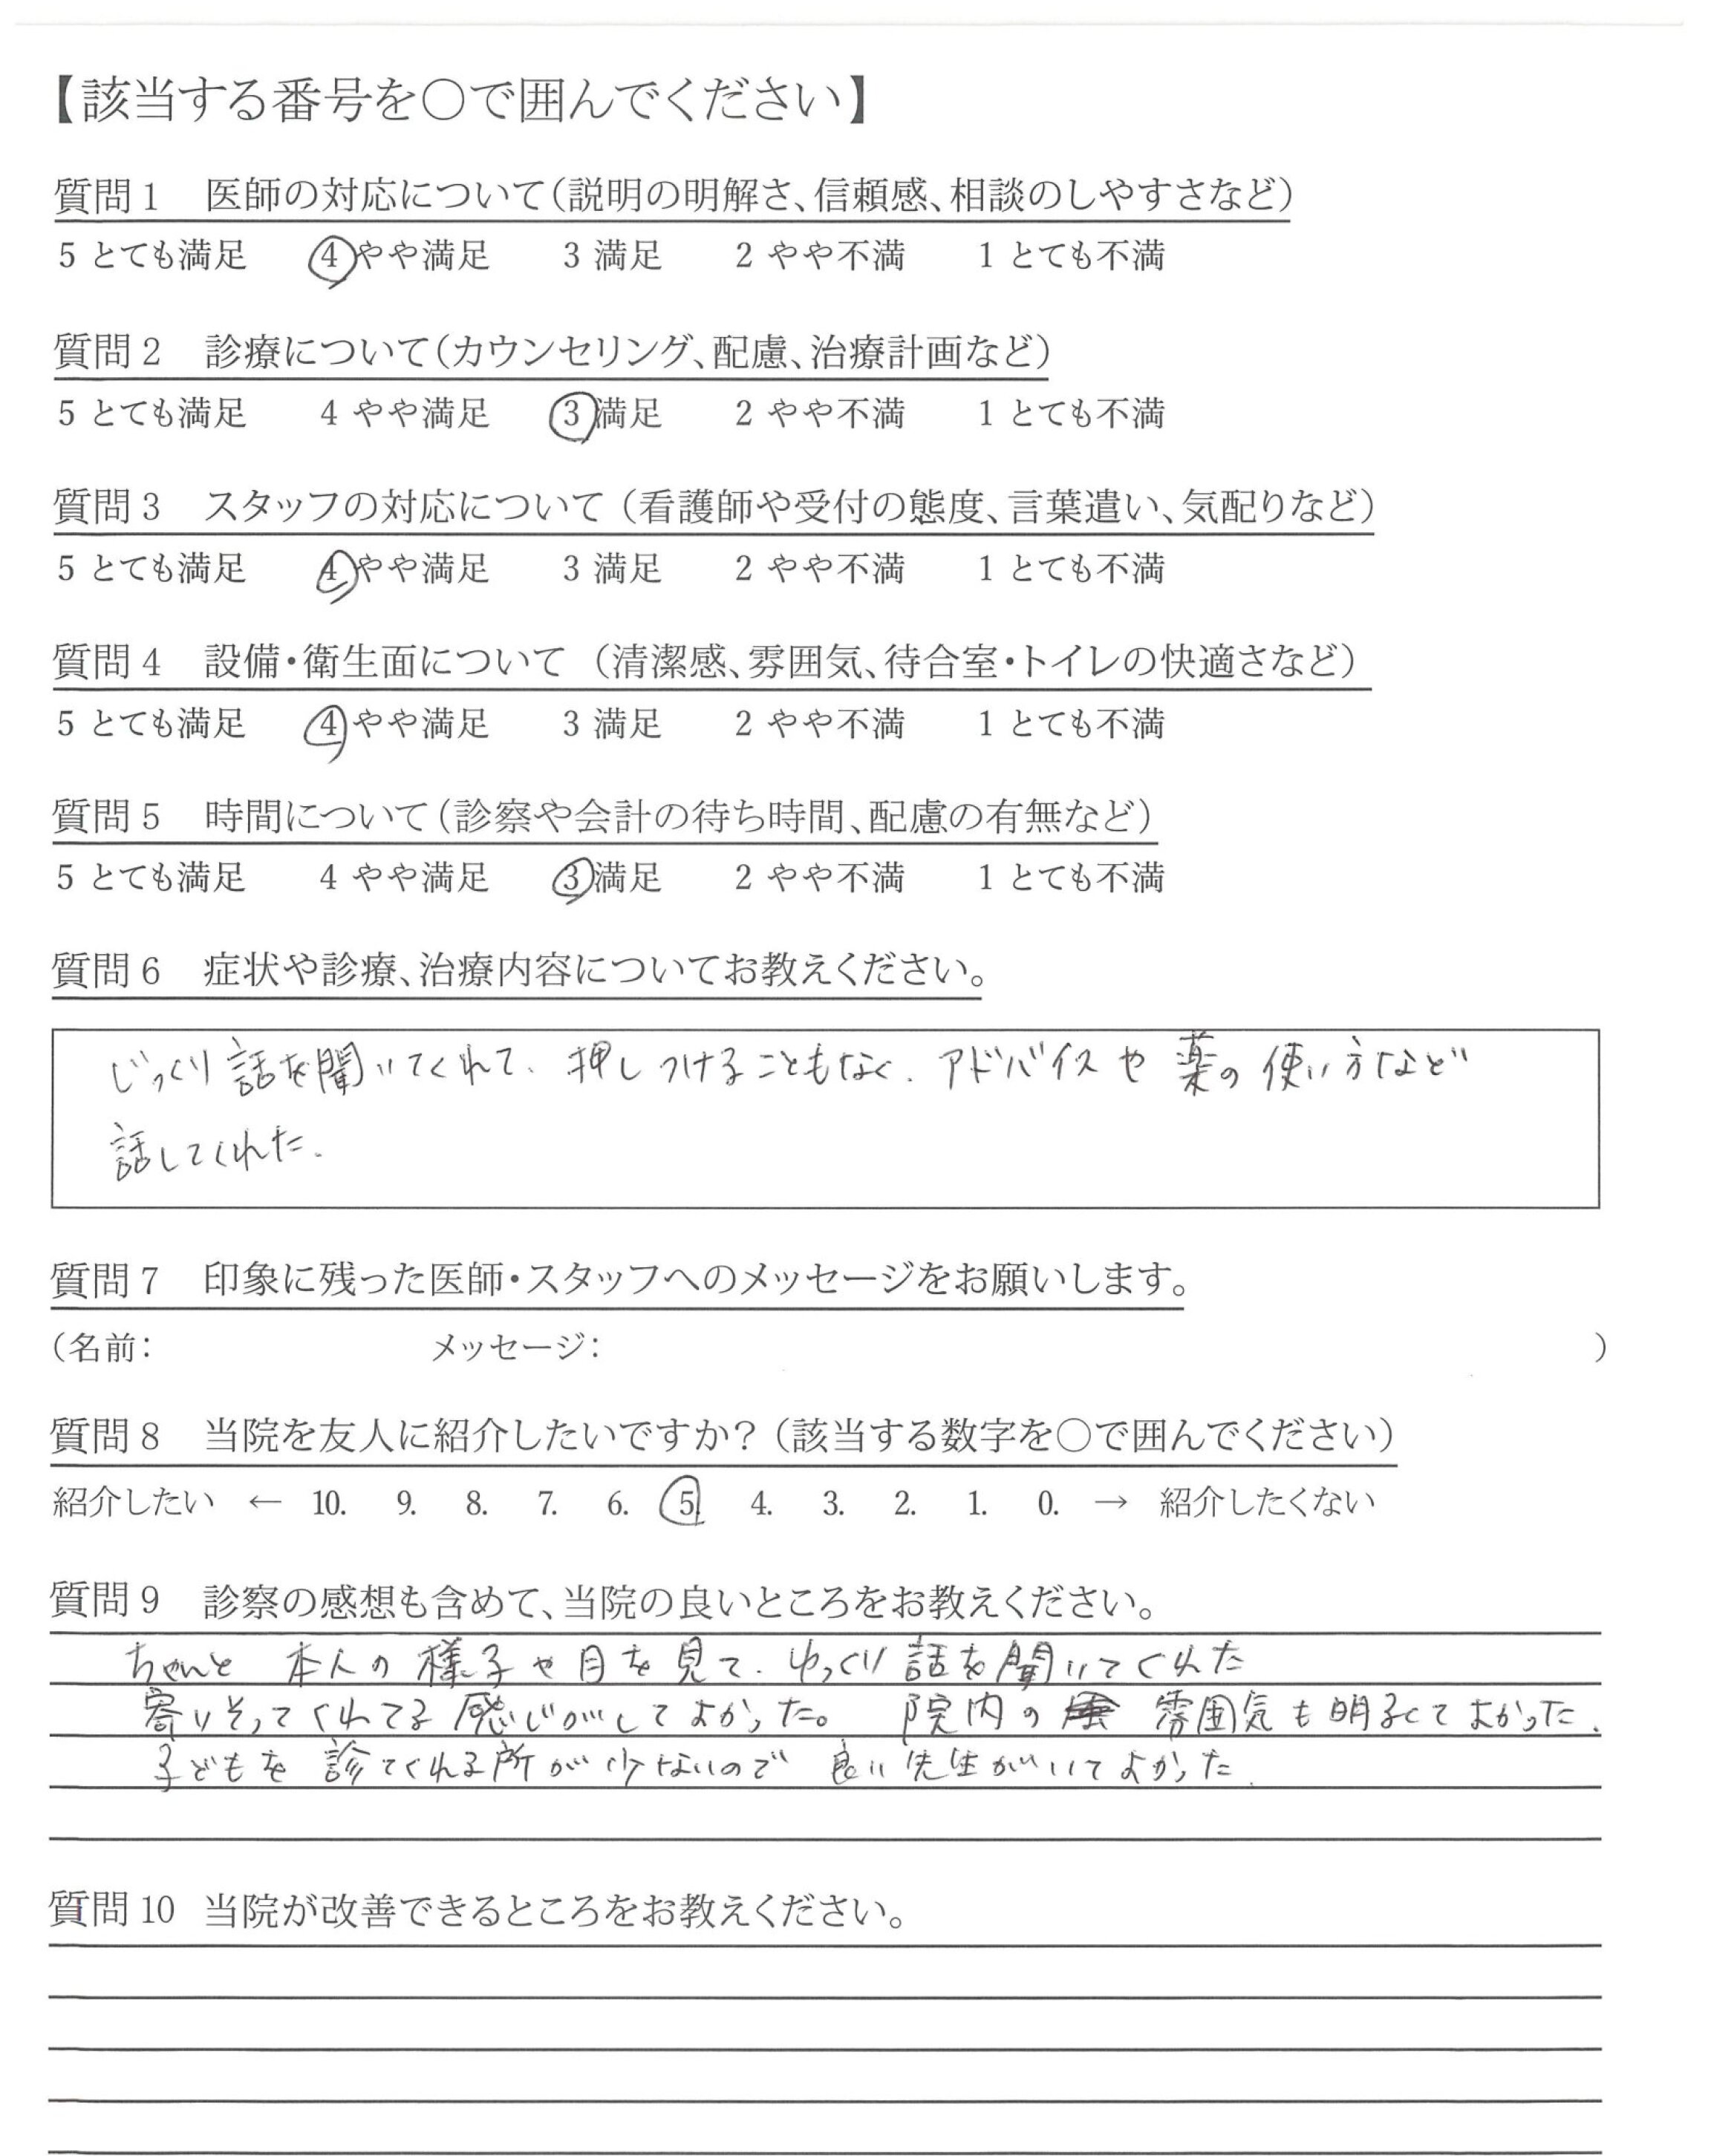 【該当する番号を○で囲んでください】
質問1　医師の対応について（説明の明解さ、信頼感、相談のしやすさなど）
5 とても満足　4 やや満足　3 満足　2 やや不満　1 とても不満
質問2　診療について（カウンセリング、配慮、治療計画など）
5 とても満足　4 やや満足　3 満足　2 やや不満　1 とても不満
質問3　スタッフの対応について（看護師や受付の態度、言葉遣い、気配りなど）
5 とても満足　4 やや満足　3 満足　2 やや不満　1 とても不満
質問4　設備・衛生面について（清潔感、雰囲気、待合室・トイレの快適さなど）
5 とても満足　4 やや満足　3 満足　2 やや不満　1 とても不満
質問5　時間について（診察や会計の待ち時間、配慮の有無など）
5 とても満足　4 やや満足　3 満足　2 やや不満　1 とても不満
質問6　症状や診療、治療内容についてお教えください。
じっくり話を聞いてくれて、押しつけることもなく、アドバイスや薬の使い方など
話してくれた。
質問7　印象に残った医師・スタッフへのメッセージをお願いします。
（名前：　メッセージ：　）
質問8　当院を友人に紹介したいですか？（該当する数字を○で囲んでください）
紹介したい　←　10.　9.　8.　7.　6.　5.　4.　3.　2.　1.　0.　→　紹介したくない
質問9　診察の感想も含めて、当院の良いところをお教えください。
ちゃんと 本人の様子や目を見て、ゆっくり話を聞いてくれた
寄りそってくれてる感じがしてよかった。 院内の 雰囲気も明るくてよかった。
子どもを診てくれる所が少ないので 良い先生がいてよかった。
質問10　当院が改善できるところをお教えください。